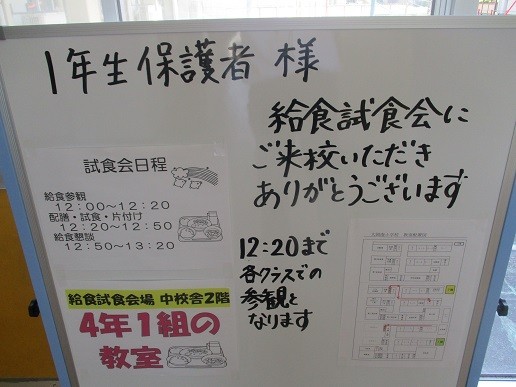 1年生保護者 様
給食試食会に
ご来校いただき
ありがとうございます
試食会日程
給食参観
12:00～12:20
配膳・試食・片付け
12:20～12:50
給食懇談
12:50～13:20
給食試食会場 中校舎2階
4年1組の
教室
12:20まで
各クラスでの
参観と
なります